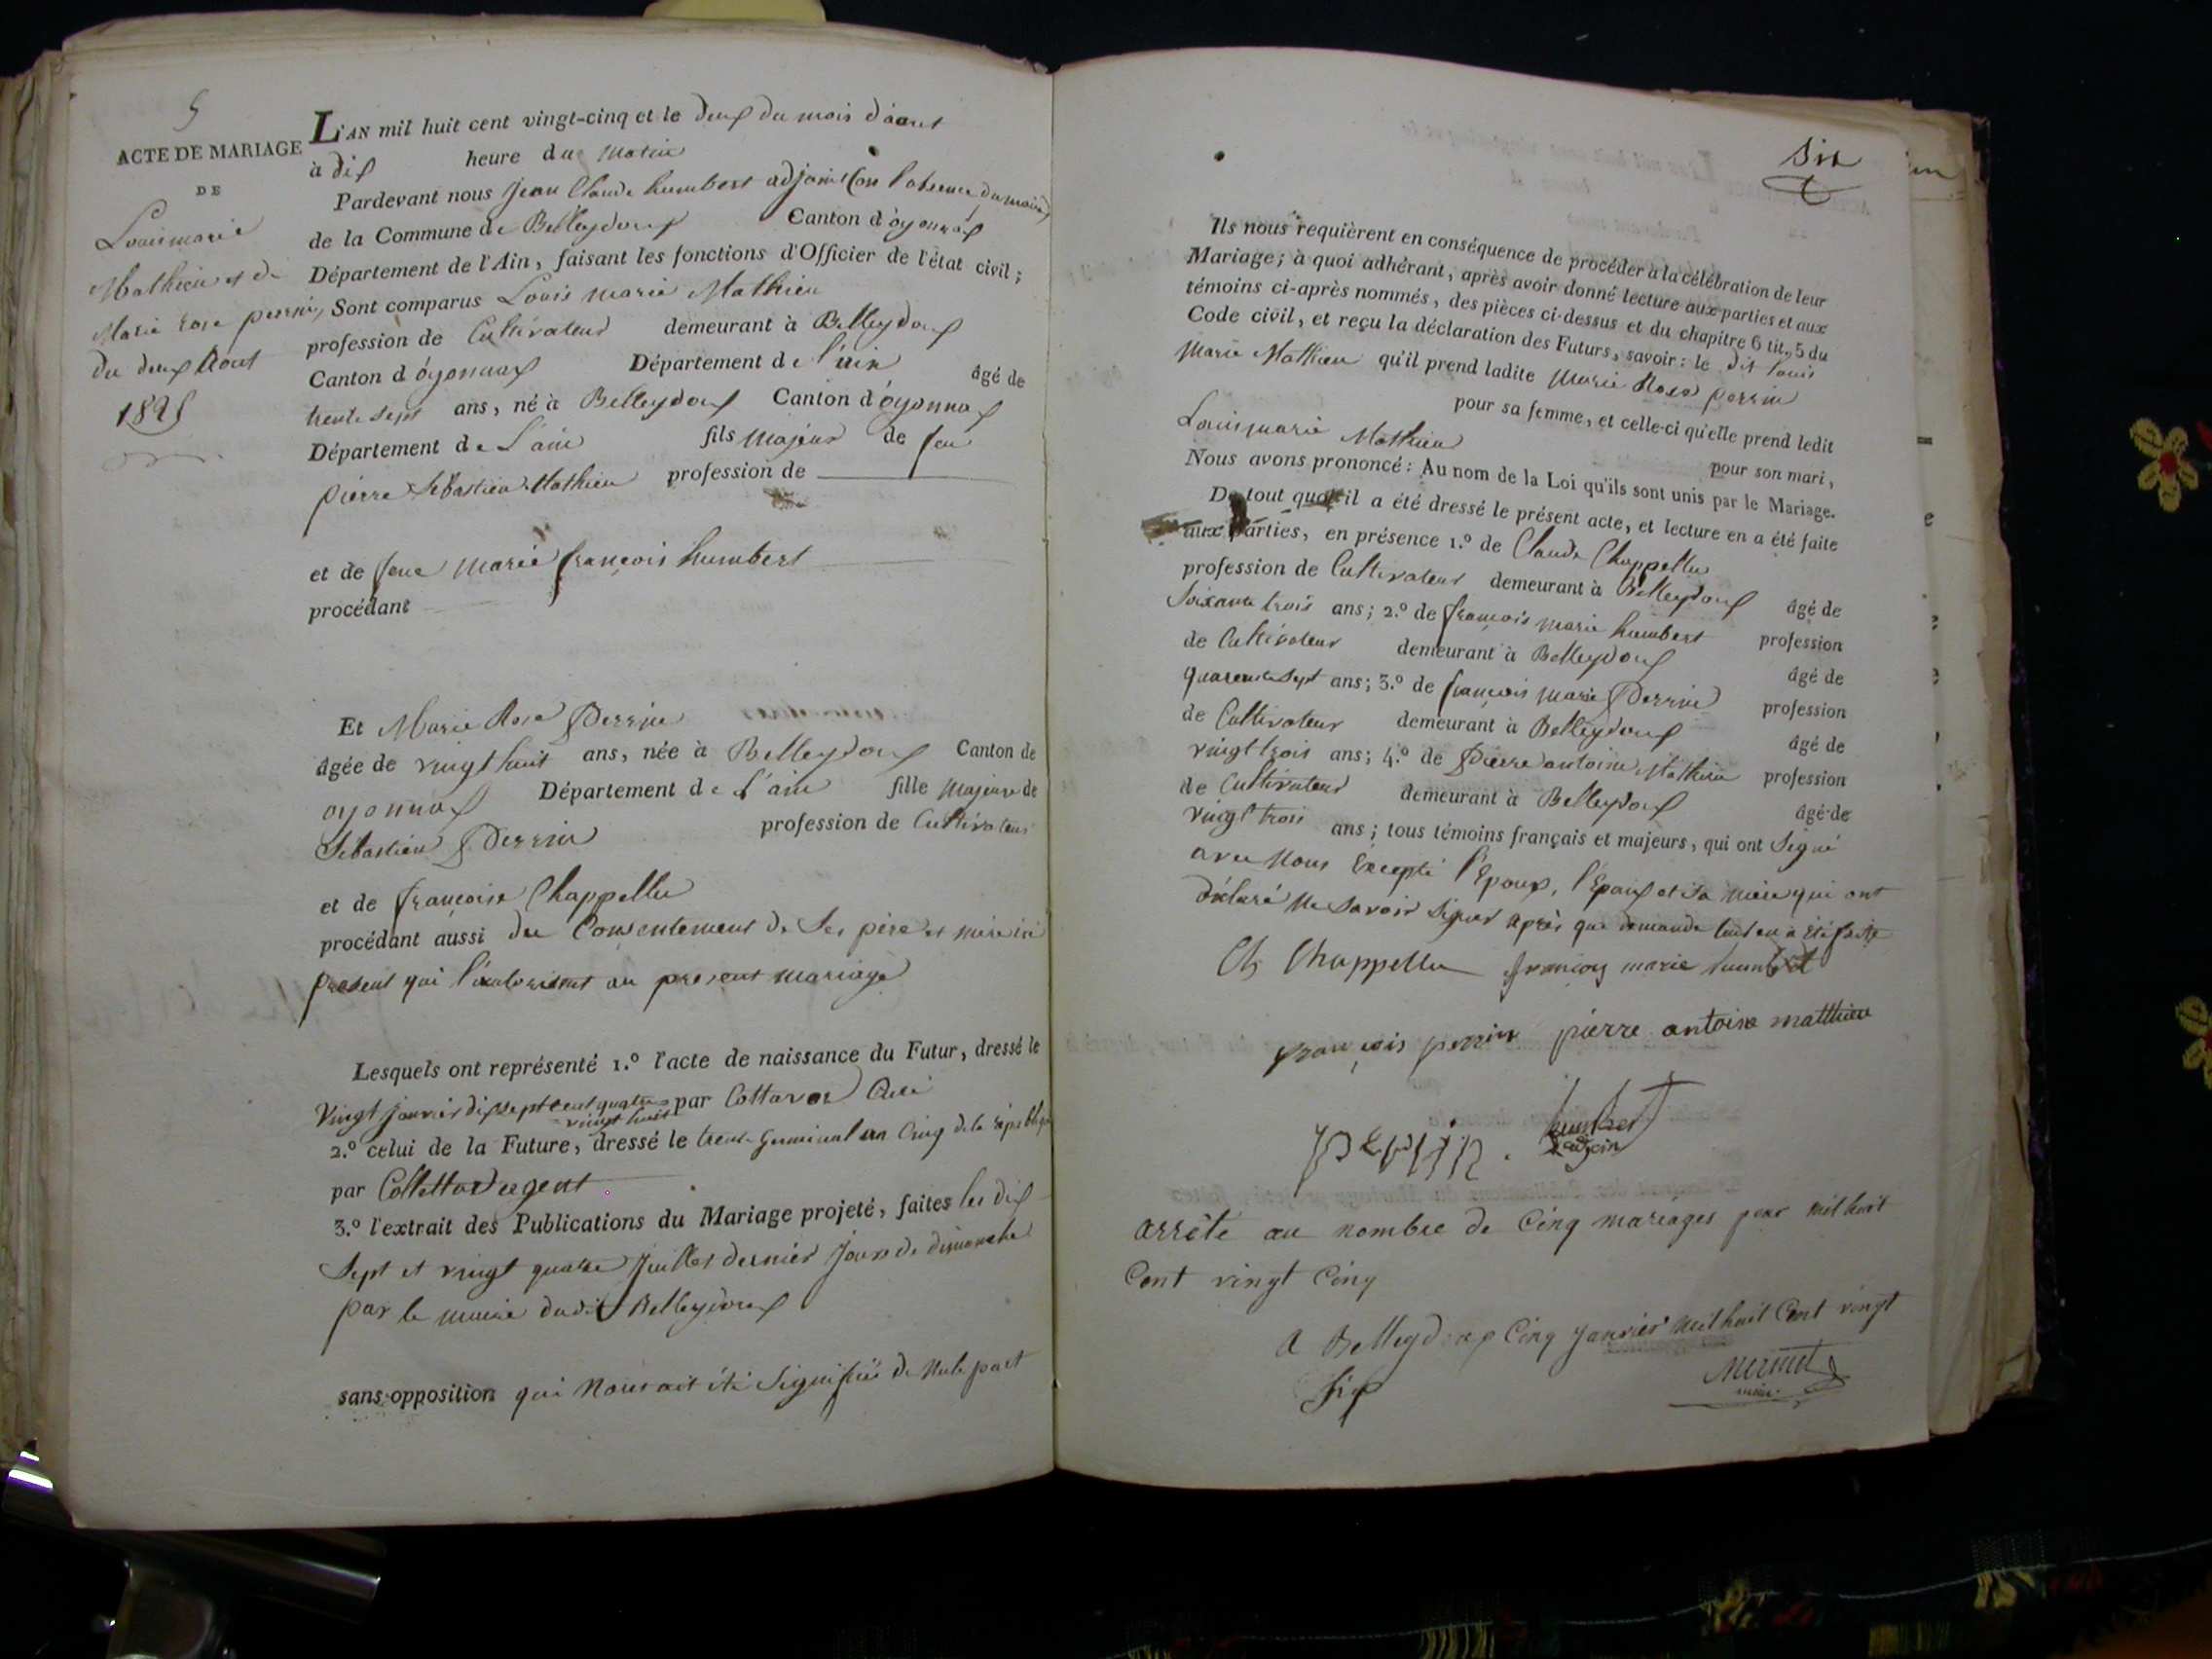 5
ACTE DE MARIAGE
DE
Louis marie
Mathieu et de
Marie rose perrin,
du deux Aout
1825
L'AN mil huit cent vingt-cinq et le deux du mois d'aout
à dix heure du matin
Pardevant nous Jean Claude humbert adjoint (en l'absence du maire)
de la Commune de Belleydoux Canton d'oyonnax
Département de l'Ain, faisant les fonctions d'Officier de l'état civil;
Sont comparus Louis marie Mathieu
profession de Cultivateur demeurant à Belleydoux
Canton d'oyonnax Département de l'ain âgé de
trente sept ans, né à Belleydoux Canton d'oyonnax
Département de L'ain fils majeur de feu
pierre Sebastien Mathieu profession de
et de feue marie françois humbert
procédant
Et Marie Rose Perrin
âgée de vingt huit ans, née à Belleydoux Canton de
oyonnax Département de L'ain fille majeure de
Sebastien Perrin profession de Cultivateur
et de françoise Chappellu
procédant aussi du Consentement de Ses père et mère ici
present qui l'autorisent au present mariage
Lesquels ont représenté 1.º l'acte de naissance du Futur, dressé le
Vingt janvier dix sept cent quatre par Cottavoz Curé
vingt huit
2.º celui de la Future, dressé le trente Germinal an Cinq de la république
par agent
3.º l'extrait des Publications du Mariage projeté, faites les dix
Sept et vingt quatre Juillet dernier jours de dimanche
par le maire dudit Belleydoux
sans opposition qui Nous ait été Signifiée de Nule part
Six
Ils nous requièrent en conséquence de procéder à la célébration de leur
Mariage; à quoi adhérant, après avoir donné lecture aux parties et aux
témoins ci-après nommés, des pièces ci-dessus et du chapitre 6 tit. 5 du
Code civil, et reçu la déclaration des Futurs, savoir: le dit louis
Marie Mathieu qu'il prend ladite Marie Rose perrin
pour sa femme, et celle-ci qu'elle prend ledit
Louis marie Mathieu pour son mari,
Nous avons prononcé: Au nom de la Loi qu'ils sont unis par le Mariage.
De tout quoi il a été dressé le présent acte, et lecture en a été faite
aux parties, en présence 1.º de Claude Chappellu
profession de Cultivateur demeurant à Belleydoux âgé de
Soixante trois ans; 2.º de françois marie humbert profession
de Cultivateur demeurant à Belleydoux âgé de
quarente Sept ans; 3.º de françois marie Perrin profession
de Cultivateur demeurant à Belleydoux âgé de
vingt trois ans; 4.º de Pierre antoine Mathieu profession
de Cultivateur demeurant à Belleydoux âgé de
vingt trois ans; tous témoins français et majeurs, qui ont Signé
avec Nous Excepté l'Epoux, l'Epouse et Sa mère qui ont
déclaré Ne Savoir Signer après que demande leur en a été faite
Cl Chappellu françois marie humbert
françois perrin pierre antoine matthieu
perrin. humbert
adjoin
arrêté au nombre de Cinq mariages pour mil huit
Cent vingt Cinq
A Belleydoux Cinq Janvier mil huit Cent vingt
Six
Mermet
maire